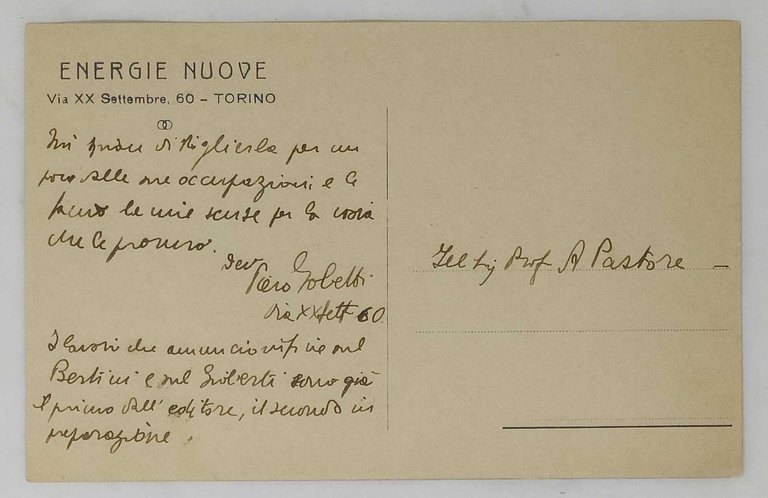 ENERGIE NUOVE
Via XX Settembre, 60 – TORINO
Mi spiace di toglierla per un
poco alle sue occupazioni e le
faccio le mie scuse per la noia
che le procuro.
dev
Piero Gobetti
Via XX Sett 60
I lavori che annunciavo sul
Bertini e sul Gioberti sono già
il primo dall' editore, il secondo in
preparazione.
Prof A Pastore –